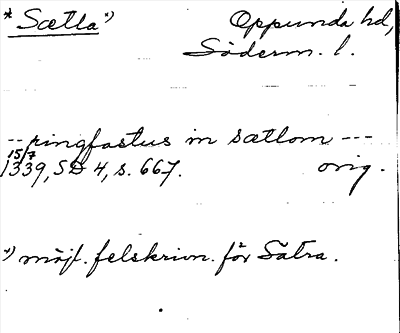 * Sætla *) Oppunda hd,
Söderm. l.
-- ringfastus in sætlom ---
15/7
1339, SD 4, s. 667. orig.
*) möjl. felskrivn. för Sätra.